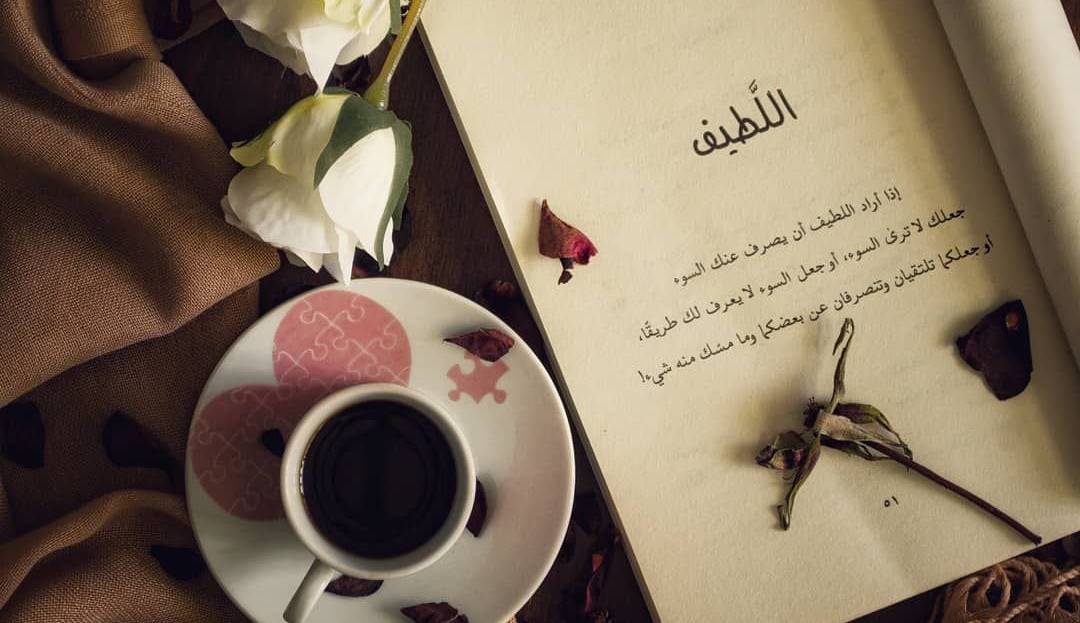 اللَّطيف
إذا أراد اللطيف أن يصرف عنك السوء
جعلك لا ترىٰ السوء، أو جعل السوء لا يعرف لك طريقًا،
أو جعلكما تلتقيان وتتصرفان عن بعضكما وما مسّك منه شيء!
٥١